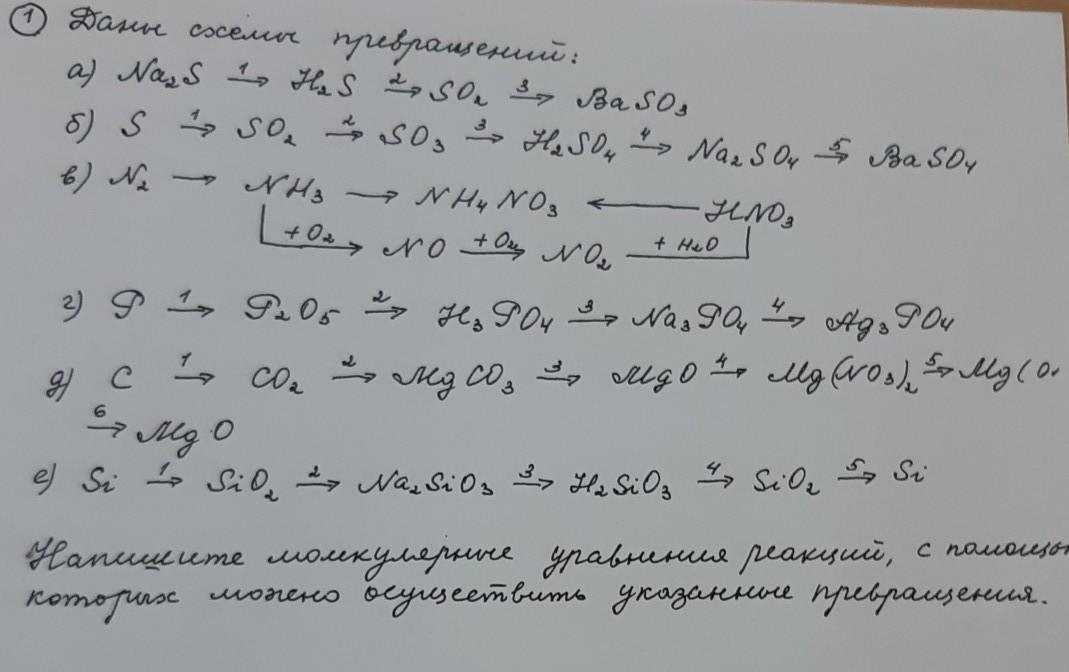 ① Даны схемы превращений:
а) Na₂S —1→ H₂S —2→ SO₂ —3→ BaSO₃
б) S —1→ SO₂ —2→ SO₃ —3→ H₂SO₄ —4→ Na₂SO₄ —5→ BaSO₄
в) N₂ → NH₃ → NH₄NO₃ ← HNO₃
+O₂ → NO —+O₂→ NO₂ —+H₂O
г) P —1→ P₂O₅ —2→ H₃PO₄ —3→ Na₃PO₄ —4→ Ag₃PO₄
д) C —1→ CO₂ —2→ MgCO₃ —3→ MgO —4→ Mg(NO₃)₂ —5→ Mg(O
—6→ MgO
е) Si —1→ SiO₂ —2→ Na₂SiO₃ —3→ H₂SiO₃ —4→ SiO₂ —5→ Si
Напишите молекулярные уравнения реакций, с помощью
которых можно осуществить указанные превращения.